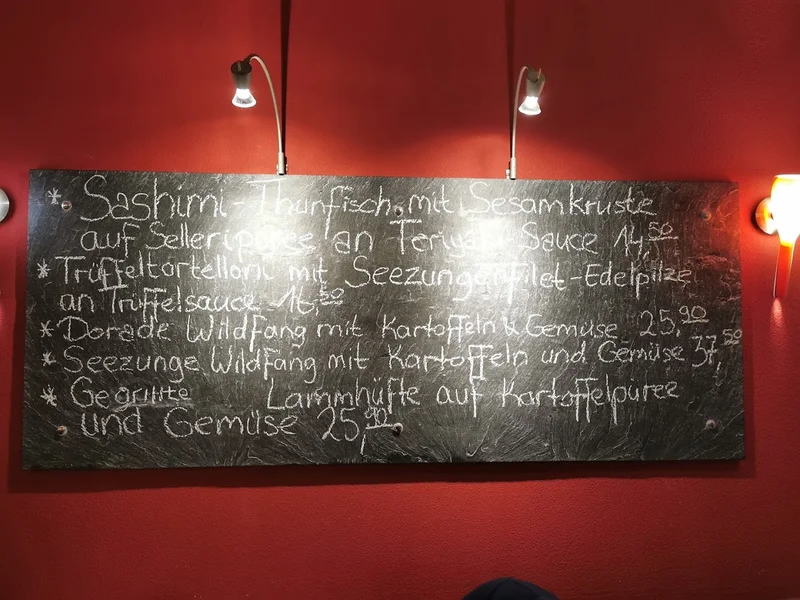 * Sashimi-Thunfisch mit Sesamkruste
auf Selleripüree an Teriyaki Sauce 14,50
* Trüffeltortelloni mit Seezungenfilet-Edelpilze
an Trüffelsauce 16,50
* Dorade Wildfang mit Kartoffeln & Gemüse 25,90
* Seezunge Wildfang mit Kartoffeln und Gemüse 37,50
* Gegrillte Lammhüfte auf Kartoffelpüree
und Gemüse 25,90